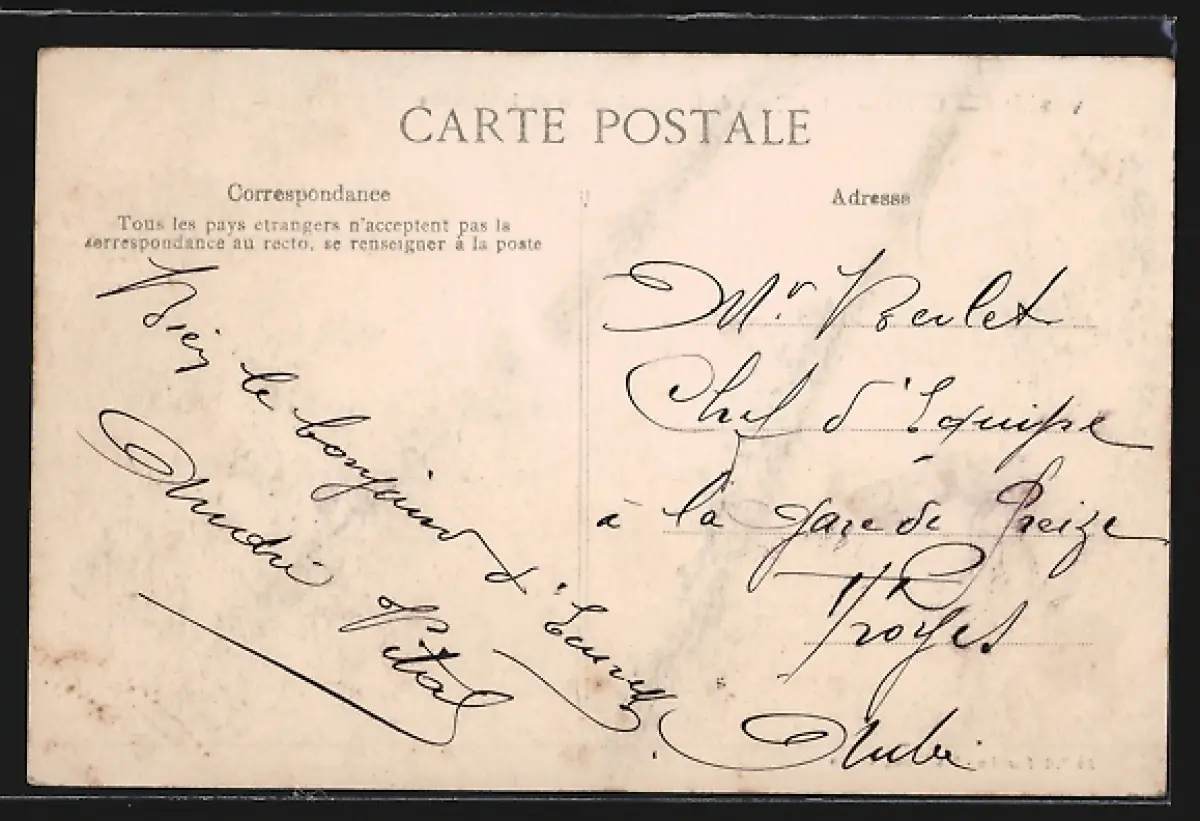 CARTE POSTALE
Correspondance
Tous les pays etrangers n'acceptent pas la
correspondance au recto, se renseigner à la poste
Bien le bonjour d'
André Vital
Adresse
Mr
Chef d'Equipe
à la gare de Preize
Troyes
Aube